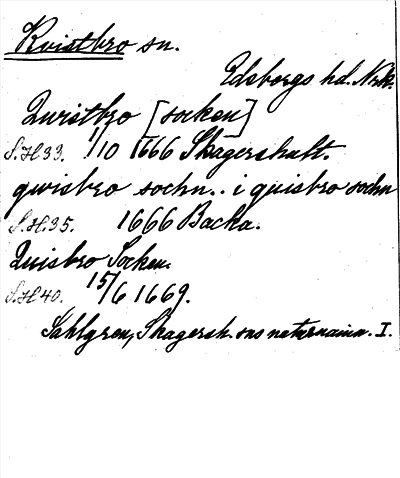 Kvistbro sn.
Edsbergs hd. Nrk.
Quistbro [socken]
S.H 33. 1/10 1666 Skagershult.
qwisbro sochn.. i quisbro sochn
S.H. 35. 1666 Backa.
Quisbro Socken.
S.H 40. 15/6 1669.
Sahlgren, Skagersh. sns naturnamn. I.